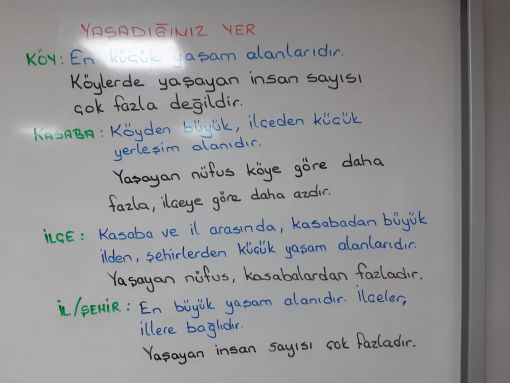 YAŞADIĞINIZ YER
KÖY: En küçük yaşam alanlarıdır.
Köylerde yaşayan insan sayısı
çok fazla değildir.
KASABA: Köyden büyük, ilçeden küçük
yerleşim alanıdır.
Yaşayan nüfus köye göre daha
fazla, ilçeye göre daha azdır.
İLÇE: Kasaba ve il arasında, kasabadan büyük
ilden, şehirlerden küçük yaşam alanlarıdır.
Yaşayan nüfus, kasabalardan fazladır.
İL/ŞEHİR: En büyük yaşam alanıdır. İlçeler,
illere bağlıdır.
Yaşayan insan sayısı çok fazladır.